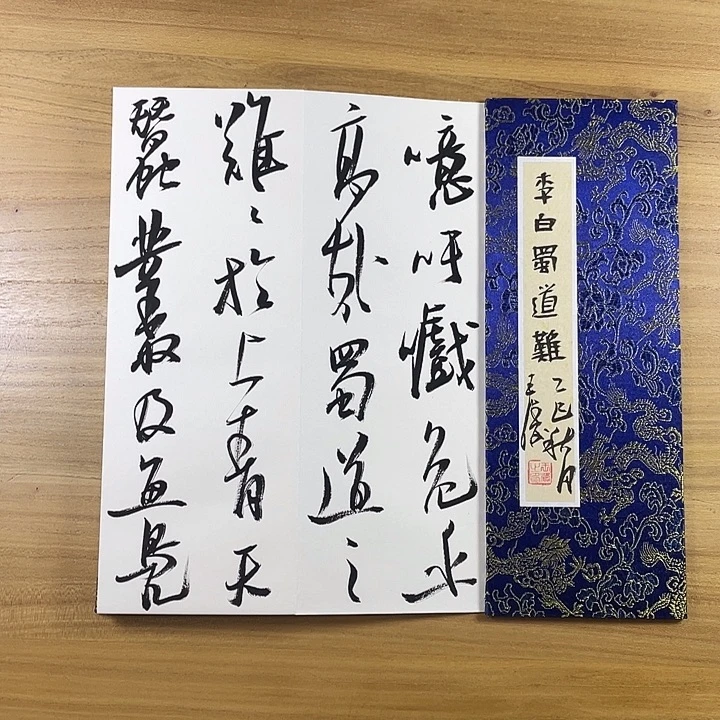 李白蜀道難
乙巳秋月
王
噫吁嚱危乎
高哉蜀道之
難〻於上青天
蠶叢及魚鳧